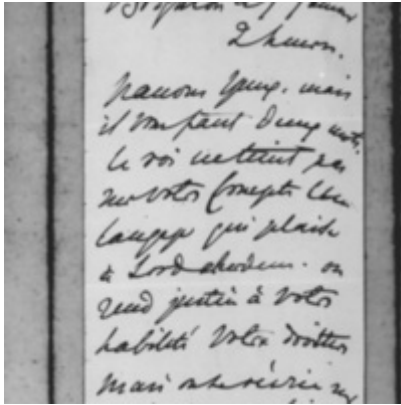 2 heures.
mais
il vous faut deux mots.
le roi ne tient pas
sur votre compte un
langage qui plaise
à Lord aberdeen. on
rend justice à votre
habileté votre droiture
mais on se récrie sur